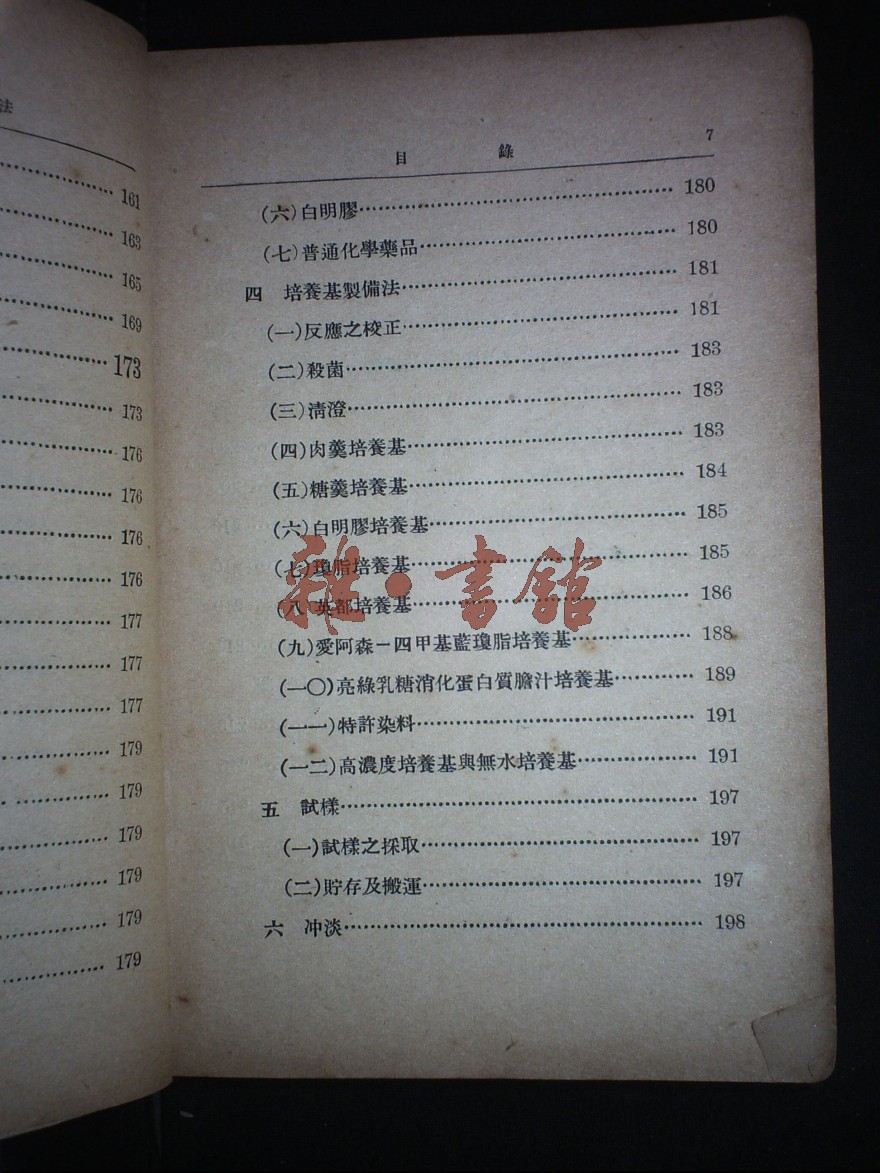 法
161
163
165
169
173
173
176
176
176
176
177
177
177
179
179
179
179
179
179
目 錄 7
(六)白明膠 180
(七)普通化學藥品 180
四 培養基製備法 181
(一)反應之校正 181
(二)殺菌 183
(三)清澄 183
(四)肉羹培養基 183
(五)糖羹培養基 184
(六)白明膠培養基 185
(七)瓊脂培養基 185
(八)英都培養基 186
(九)愛阿森－四甲基藍瓊脂培養基 188
(一〇)亮綠乳糖消化蛋白質膽汁培養基 189
(一一)特許染料 191
(一二)高濃度培養基與無水培養基 191
五 試樣 197
(一)試樣之採取 197
(二)貯存及搬運 197
六 冲淡 198
雜·書館